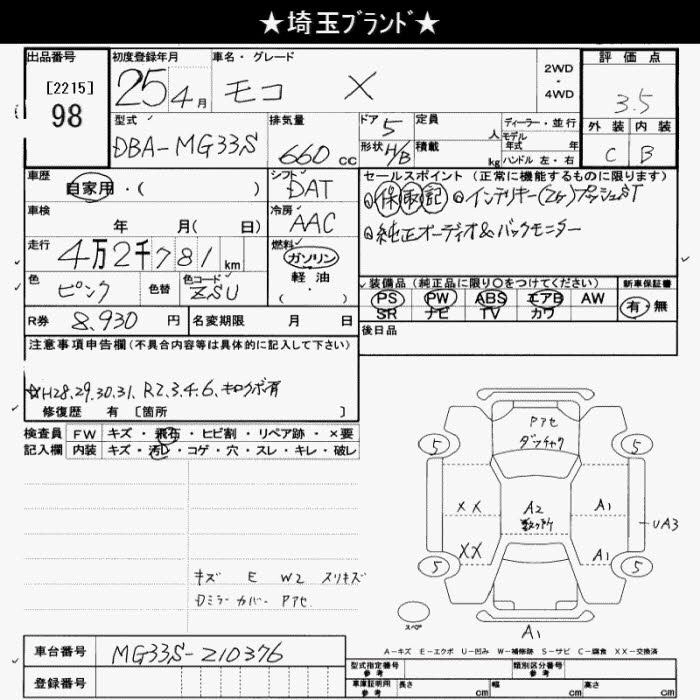 ★埼玉ブランド★
出品番号 初度登録年月 車名・グレード 2WD・4WD 評価点
[2215]
98
25年 4月 モコ X 3.5
型式 排気量 ドア 定員 ディーラー・並行 外装 内装
DBA-MG33S 660 cc 5 人 モデル年式 年
形状 H/B 積載 kg ハンドル 左・右 C B
車歴 シフト セールスポイント(正常に機能するものに限ります)
自家用・( ) DAT ◎保取記 ◎インテリキー(2ケ)プッシュST
車検 冷房 ◎純正オーディオ&バックモニター
年 月(日) AAC
走行 燃料
4万2千781 km ガソリン
軽油
・( )
色 色替 色コード 装備品(純正品に限り○をつけてください) 新車保証書
ピンク ZSU PS PW ABS エアB AW 有・無
SR ナビ TV カワ
R券 8,930 円 名変期限 月 日 後日品
注意事項申告欄(不具合内容等は具体的に記入して下さい)
☆H28.29.30.31. R2.3.4.6.キロクボ有
修復歴 有 [箇所 ]
検査員 FW キズ・飛石・ヒビ割・リペア跡・×要
記入欄 内装 キズ・汚レ・コゲ・穴・スレ・キレ・破レ
Pアセ
5 5
XX A2 A1
UA3
XX A1
5 5
キズ E W2 スリキズ
Dミラーカバー Pアセ
スペア
A1
A-キズ E-エクボ U-凹み W-補修跡 S-サビ C-腐食 XX-交換済
車台番号 MG33S-210376
型式指定番号 参考 類別区分番号 参考
登録番号 車庫証明用 参考 長さ cm 幅 cm 高さ cm